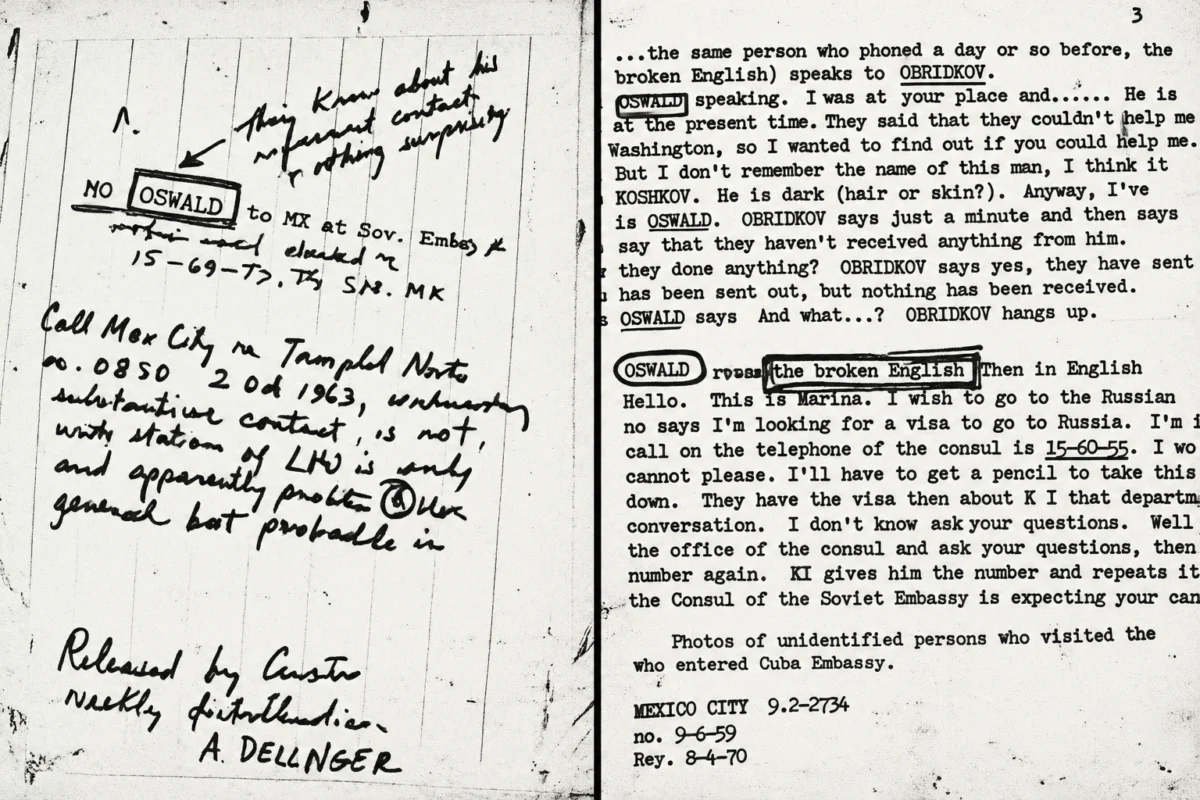 they know about his
contact
nothing surprising
NO OSWALD to MX at Sov. Embasy
15-69-T7. Thy MK
Call Mex City re Tampled Norto
no. 0850 2 Od 1963,
substantiue contact, is not,
station of LHO is only
and apparently
general bat probadle in
Released by Custro
A. DELLNGER
3
...the same person who phoned a day or so before, the
broken English) speaks to OBRIDKOV.
OSWALD speaking. I was at your place and...... He is
at the present time. They said that they couldn't help me
Washington, so I wanted to find out if you could help me.
But I don't remember the name of this man, I think it
KOSHKOV. He is dark (hair or skin?). Anyway, I've
is OSWALD. OBRIDKOV says just a minute and then says
say that they haven't received anything from him.
they done anything? OBRIDKOV says yes, they have sent
has been sent out, but nothing has been received.
s OSWALD says And what...? OBRIDKOV hangs up.
OSWALD the broken English Then in English
Hello. This is Marina. I wish to go to the Russian
no says I'm looking for a visa to go to Russia. I'm i
call on the telephone of the consul is 15-60-55. I wo
cannot please. I'll have to get a pencil to take this
down. They have the visa then about K I that departm
conversation. I don't know ask your questions. Well
the office of the consul and ask your questions, then
number again. KI gives him the number and repeats it
the Consul of the Soviet Embassy is expecting your can
Photos of unidentified persons who visited the
who entered Cuba Embassy.
MEXICO CITY 9.2-2734
no. 9-6-59
Rey. 8-4-70